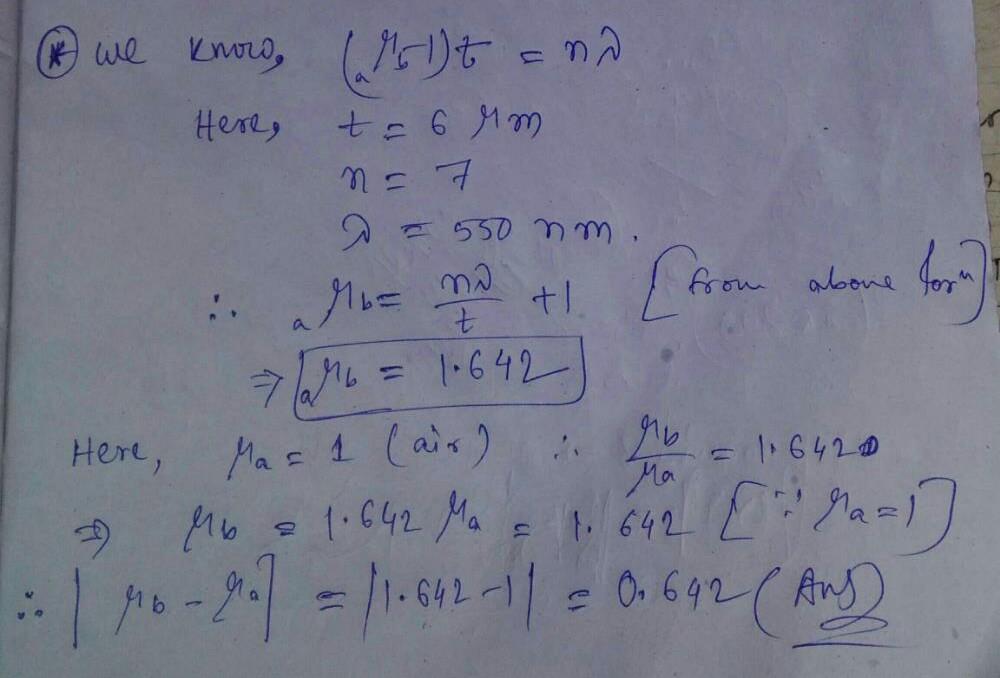 * we know, (ₐμb-1)t = nλ
Here, t = 6 μm
n = 7
λ = 550 nm.
∴ ₐμb = nλ/t + 1 [from above forⁿ]
⇒ ₐμb = 1.642
Here, μa = 1 (air) ∴ μb/μa = 1.642
⇒ μb = 1.642 μa = 1.642 [∵ μa = 1]
∴ |μb - μa| = |1.642 - 1| = 0.642 (Ans)